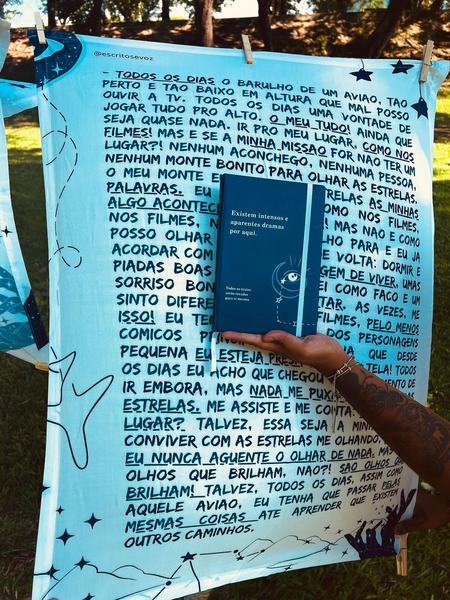 @escritosevoz
- TODOS OS DIAS O BARULHO DE UM AVIÃO, TÃO
PERTO E TÃO BAIXO EM ALTURA QUE MAL POSSO
OUVIR A TV. TODOS OS DIAS UMA VONTADE DE
JOGAR TUDO PRO ALTO. O MEU TUDO! AINDA QUE
SEJA QUASE NADA. IR PRO MEU LUGAR, COMO NOS
FILMES! MAS E SE A MINHA MISSÃO FOR NÃO TER UM
LUGAR?! NENHUM ACONCHEGO, NENHUMA PESSOA,
NENHUM MONTE BONITO PARA OLHAR AS ESTRELAS.
O MEU MONTE E RELAS AS MINHAS
PALAVRAS. EU
ALGO ACONTEC OMO NOS FILMES,
NOS FILMES, N ! MAS NÃO E COMO
POSSO OLHAR HO PARA E EU JA
ACORDAR COM E VOLTA: DORMIR E
PIADAS BOAS GEM DE VIVER, UMAS
SORRISO BON EI COMO FACE E UM
SINTO DIFERE TAR, AS VEZES, ME
ISSO! EU TE FILMES, PELO MENOS
COMICOS P DOS PERSONAGENS
PEQUENA EU ESTEJA PRES QUE DESDE
OS DIAS EU ACHO QUE CHEGOU TELA! TODOS
IR EMBORA, MAS NADA ME PUX MENTO DE
ESTRELAS. ME ASSISTE E ME CONTA:
LUGAR? TALVEZ, ESSA SEJA A MINH
CONVIVER COM AS ESTRELAS ME OLHANDO,
EU NUNCA AGUENTE O OLHAR DE NADA. MA
OLHOS QUE BRILHAM, NÃO?! SÃO OLHOS Q
BRILHAM! TALVEZ, TODOS OS DIAS, ASSIM COMO
AQUELE AVIÃO, EU TENHA QUE PASSAR PELAS
MESMAS COISAS ATE APRENDER QUE EXISTEM
OUTROS CAMINHOS.
Existem intensos e
aparentes dramas
por aqui.
Todos os textos
serão voltados
para si mesma